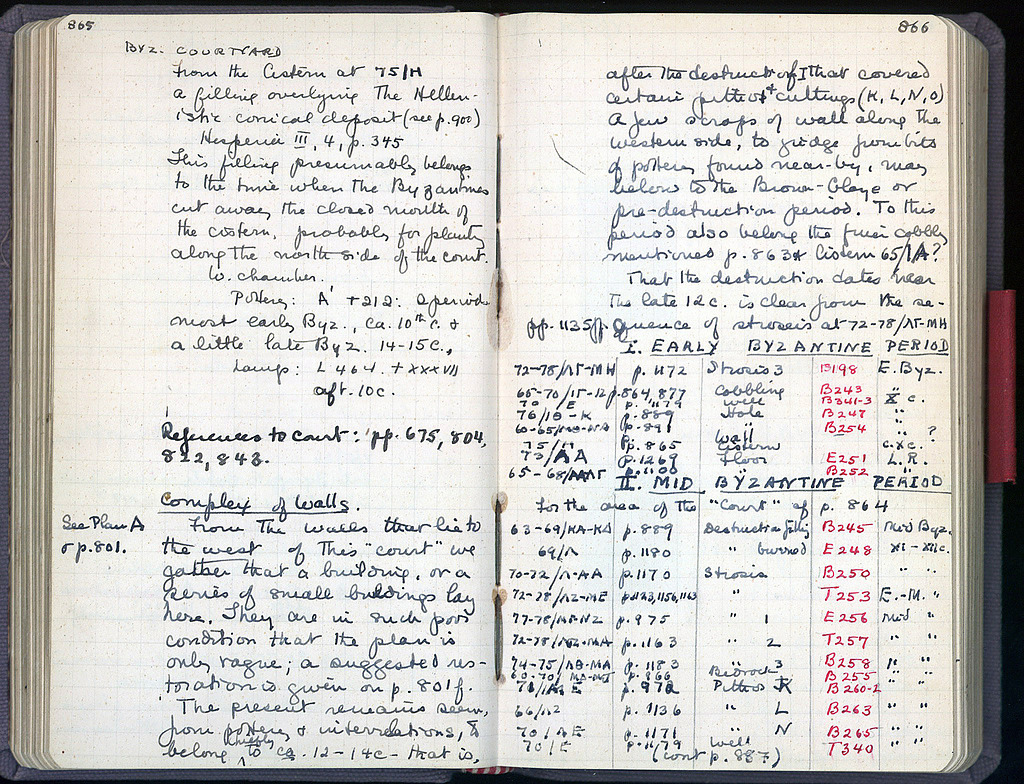 865
Byz. COURTYARD
from the Cistern at 75/H
a filling overlying the Hellen-
istic conical deposit (see p. 900)
Hesperia III, 4, p. 345
This filling presumably belongs
to the time when the Byzantines
cut away the closed mouth of
the cistern, probably for planting
along the north side of the court.
W. chamber.
Pottery: A' +212: 2 periods
most early Byz., ca. 10th c. &
a little late Byz. 14-15c.,
Lamps: L 464. + XXXVII
aft. 10c.
References to court: pp. 675, 804,
822, 843.
Complex of Walls.
See Plan A
& p. 801.
From the walls that lie to
the west of this "court" we
gather that a building, or a
series of small buildings lay
here. They are in such poor
condition that the plan is
only vague; a suggested res-
toration is given on p. 801f.
The present remains seem,
from pottery & interrelations, to
belong chiefly to ca. 12-14c - that is,
866
after the destruct. of I that covered
certain pithos & cuttings (K, L, N, O)
A few scraps of wall along the
western side, to judge from bits
of pottery found near-by, may
belong to the Brown-Glaze or
pre-destruction period. To this
period also belong the finer cobbling
mentioned p. 863 & Cistern 65/IA?
That the destruction dates near
the late 12c. is clear from the se-
pp. 1135ff quence of strosis at 72-78/ΛΓ-MH
I. EARLY BYZANTINE PERIOD
72-78/ΛΓ-MH p. 1172 Strosis 3 B198 E. Byz.
65-70/ΙΓ-12 p. 864, 877 Cobbling B243 "
70/E p. 1179 well B341-3 X c.
76/ΙΘ-K p. 889 Hole B247 "
p. 891 Wall B254 " ?
75/H p. 865 Cistern c. Xc.
73/AA p. 1269 Floor E251 L.R.
65-68/ p. 1108 " B252 "
II. MID BYZANTINE PERIOD
For the area of the "Court" cf p. 864
63-69/KA-KΔ p. 889 Destruction filling B245 Mid Byz.
69/Λ p. 1180 " burned E248 XI-XIIc.
70-72/Λ-AA p. 1170 Strosis B250 " "
72-78/ΛZ-ME p. 1123, 1156, 1163 " T253 E.-M. "
77-78/ΜΓ-NZ p. 975 " 1 E256 Mid "
72-78/ΛZ-MA p. 1163 " 2 T257 " "
74-75/ΛΘ-MA p. 1183 " 3 B258 " "
60-70/ p. 866 Bedrock B255 " "
p. 972 Pithos K B260-2
66/Λ2 p. 1136 " L B263 " "
70/ΛE p. 1171 " N B265 " "
70/E p. 1179 Well T340 " "
(cont p. 887)